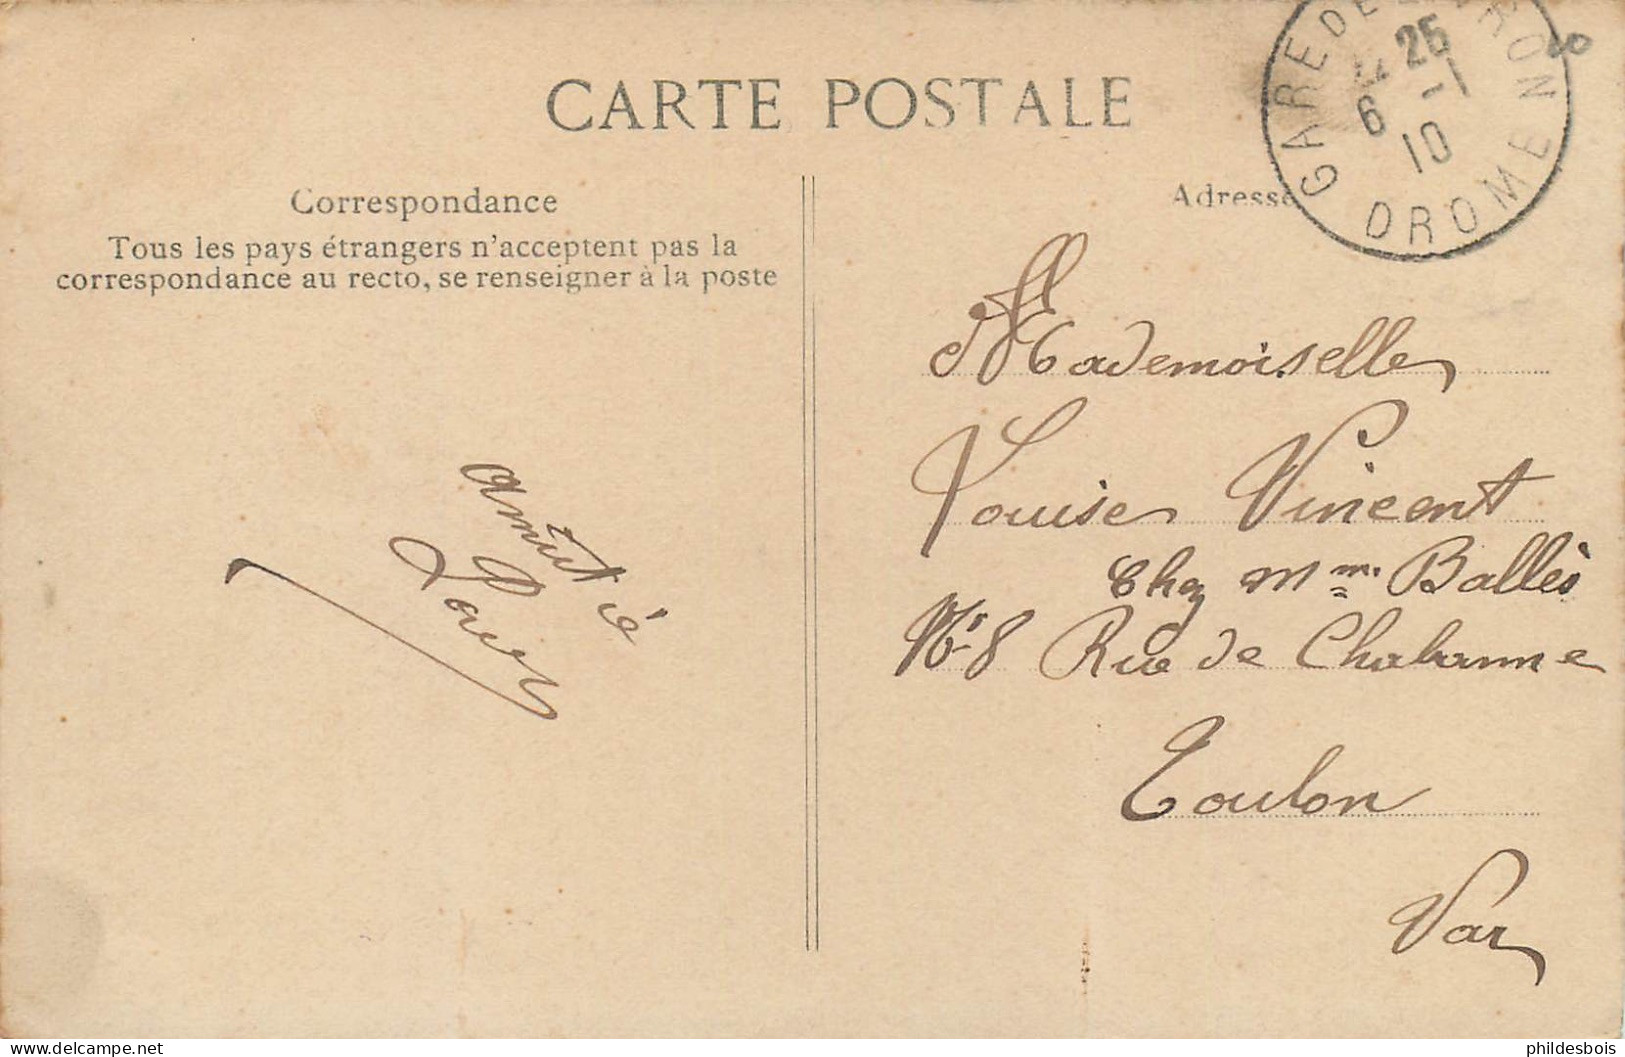 CARTE POSTALE
GARE DE
25
6 - 1
10
DROME
Correspondance
Tous les pays étrangers n'acceptent pas la
correspondance au recto, se renseigner à la poste
Adresse
Mademoiselle
Louise Vincent
Chez Mme. Ballès
No 8 Rue de Chabanne
Toulon
Var
amitié
phildesbois